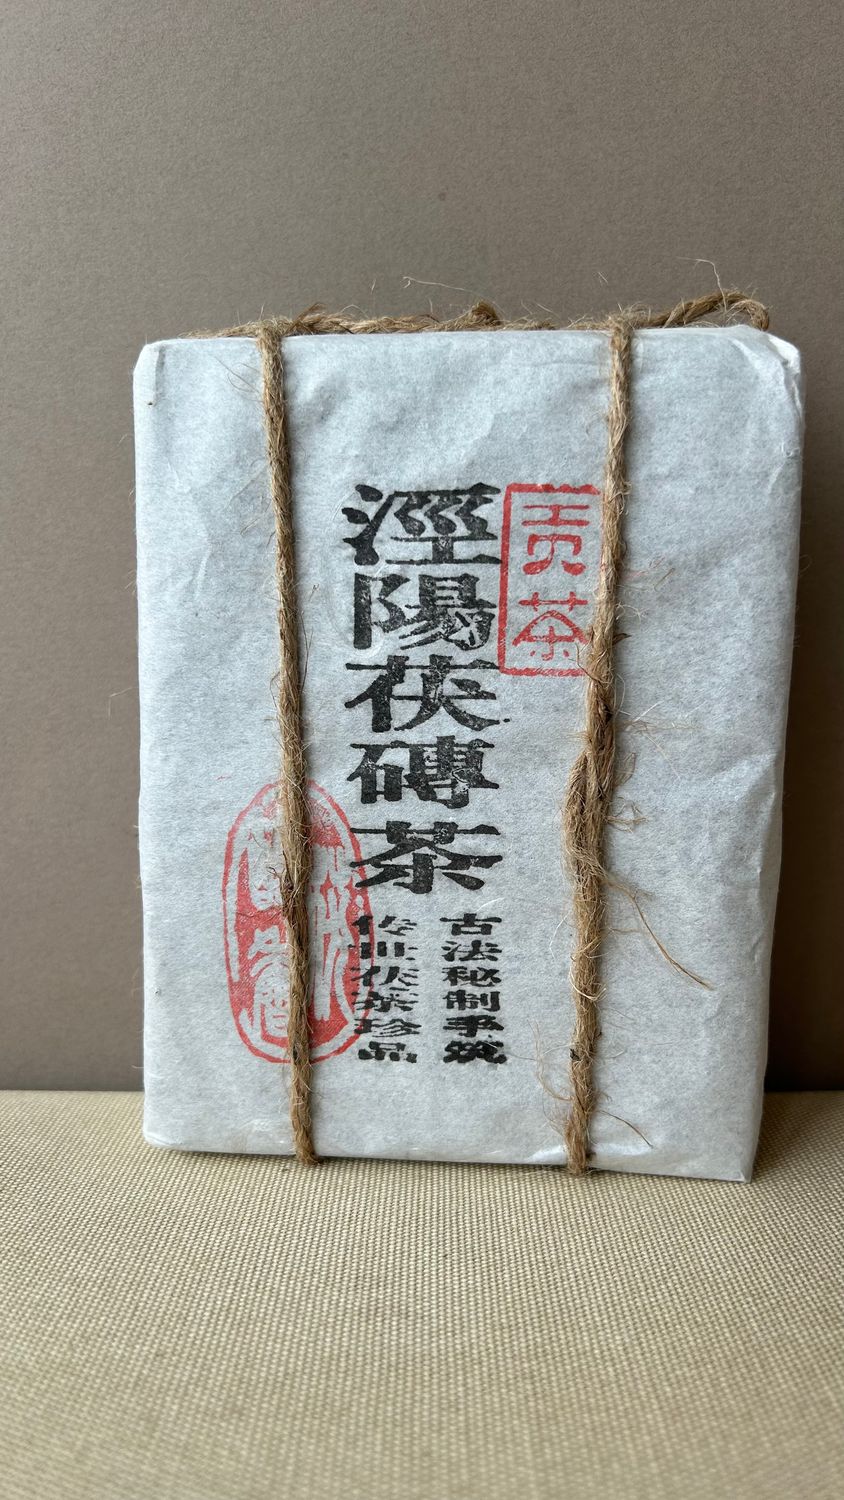 貢茶
涇陽茯磚茶
古法秘制手筑
传世茯茶珍品